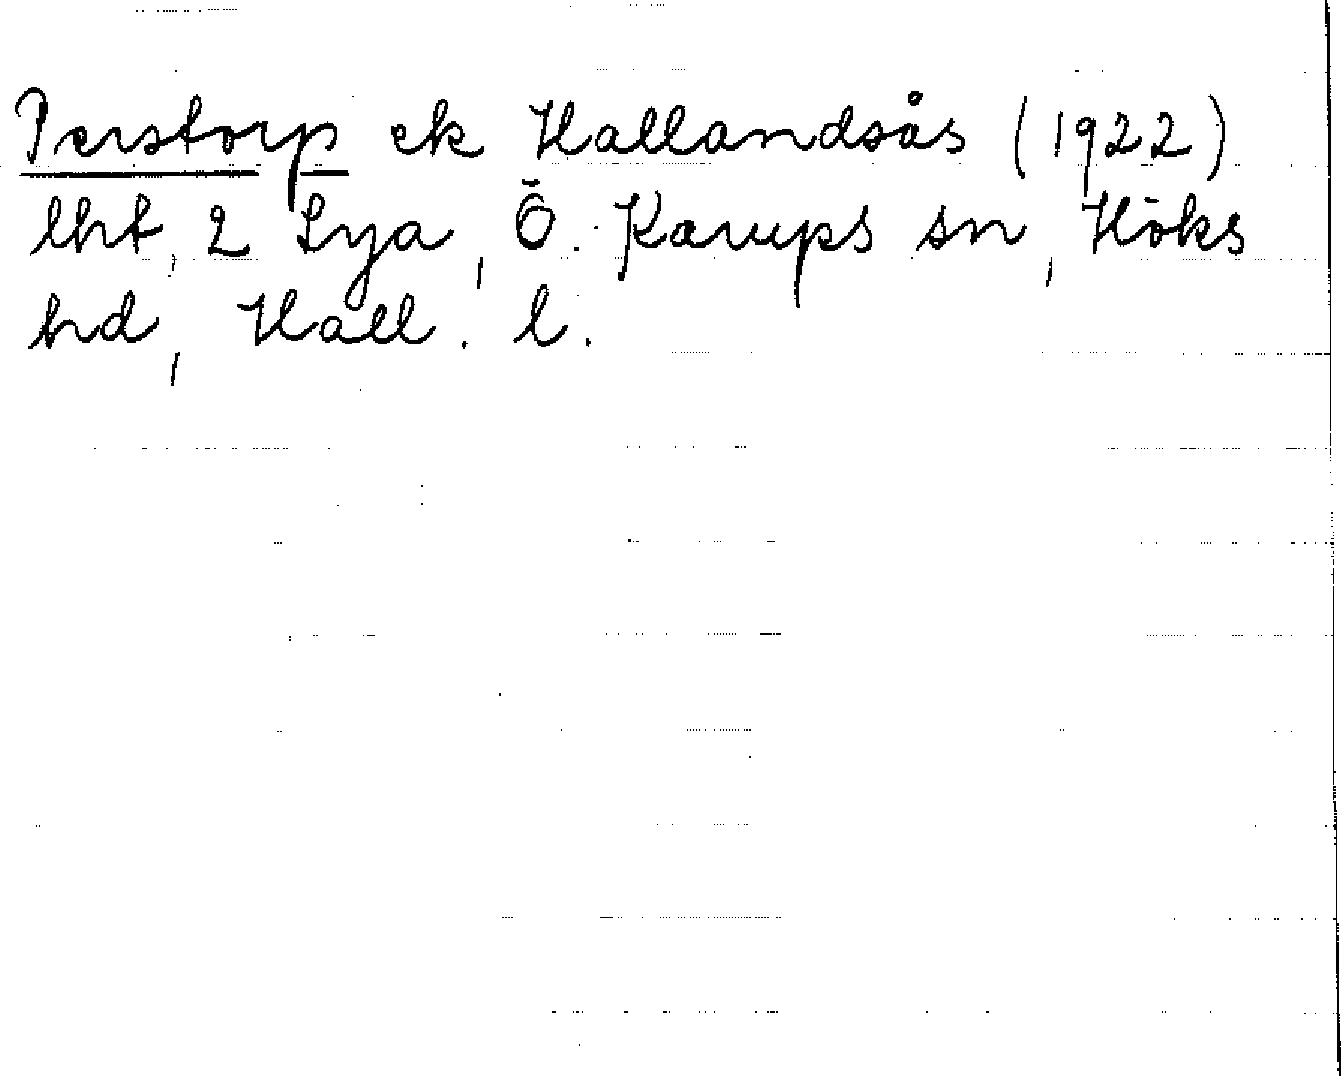 Perstorp ek Hallandsås (1922)
lht, 2 Lya, Ö. Karups sn, Höks
hd, Hall. l.